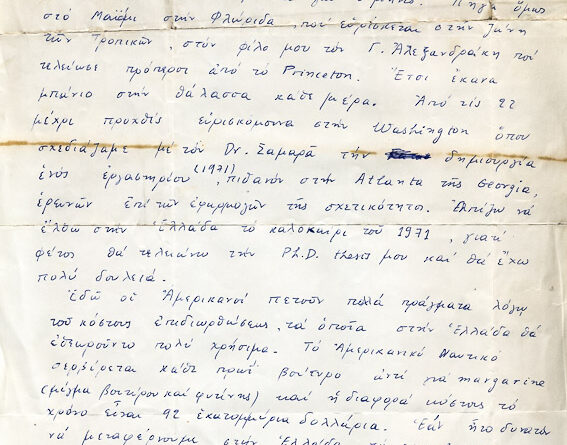 Πῆγα ὅμως
στό Μαϊάμι στήν Φλώριδα, πού εὑρίσκεται στήν ζώνη
τῶν Τροπικῶν, στόν φίλο μου τόν Γ. Ἀλεξανδράκη πού
τελείωσε πρόπερσι ἀπό τό Princeton. Ἔτσι ἔκανα
μπάνιο στήν θάλασσα κάθε μέρα. Ἀπό τίς 22
μέχρι προχθές εὑρισκόμουνα στήν Washington ὅπου
σχεδιάζαμε μέ τόν Dr. Σαμαρᾶ τήν δημιουργία
ἑνός ἐργαστηρίου (1971), πιθανόν στήν Atlanta τῆς Georgia,
ἐρευνῶν ἐπί τῶν ἐφαρμογῶν τῆς σχετικότητος. Ἐλπίζω νά
ἔλθω στήν Ἑλλάδα τό καλοκαίρι τοῦ 1971, γιατί
φέτος θά τελειώνω τήν Ph.D. thesis μου καί θά ἔχω
πολύ δουλειά.
Ἐδῶ οἱ Ἀμερικανοί πετοῦν πολλά πράγματα λόγω
τοῦ κόστους ἐπιδιορθώσεως, τά ὁποῖα στήν Ἑλλάδα θά
ἐθεωροῦντο πολύ χρήσιμα. Τό Ἀμερικανικό Ναυτικό
σερβίρεται κάθε πρωΐ βούτυρο ἀντί γιά margarine
(μῖγμα βουτύρου καί φυτίνης) καί ἡ διαφορά κόστους τό
χρόνο εἶναι 92 ἑκατομμύρια δολλάρια. Ἐάν ἦτο δυνατόν
νά μεταφέρνουμε στήν Ἑλλάδα